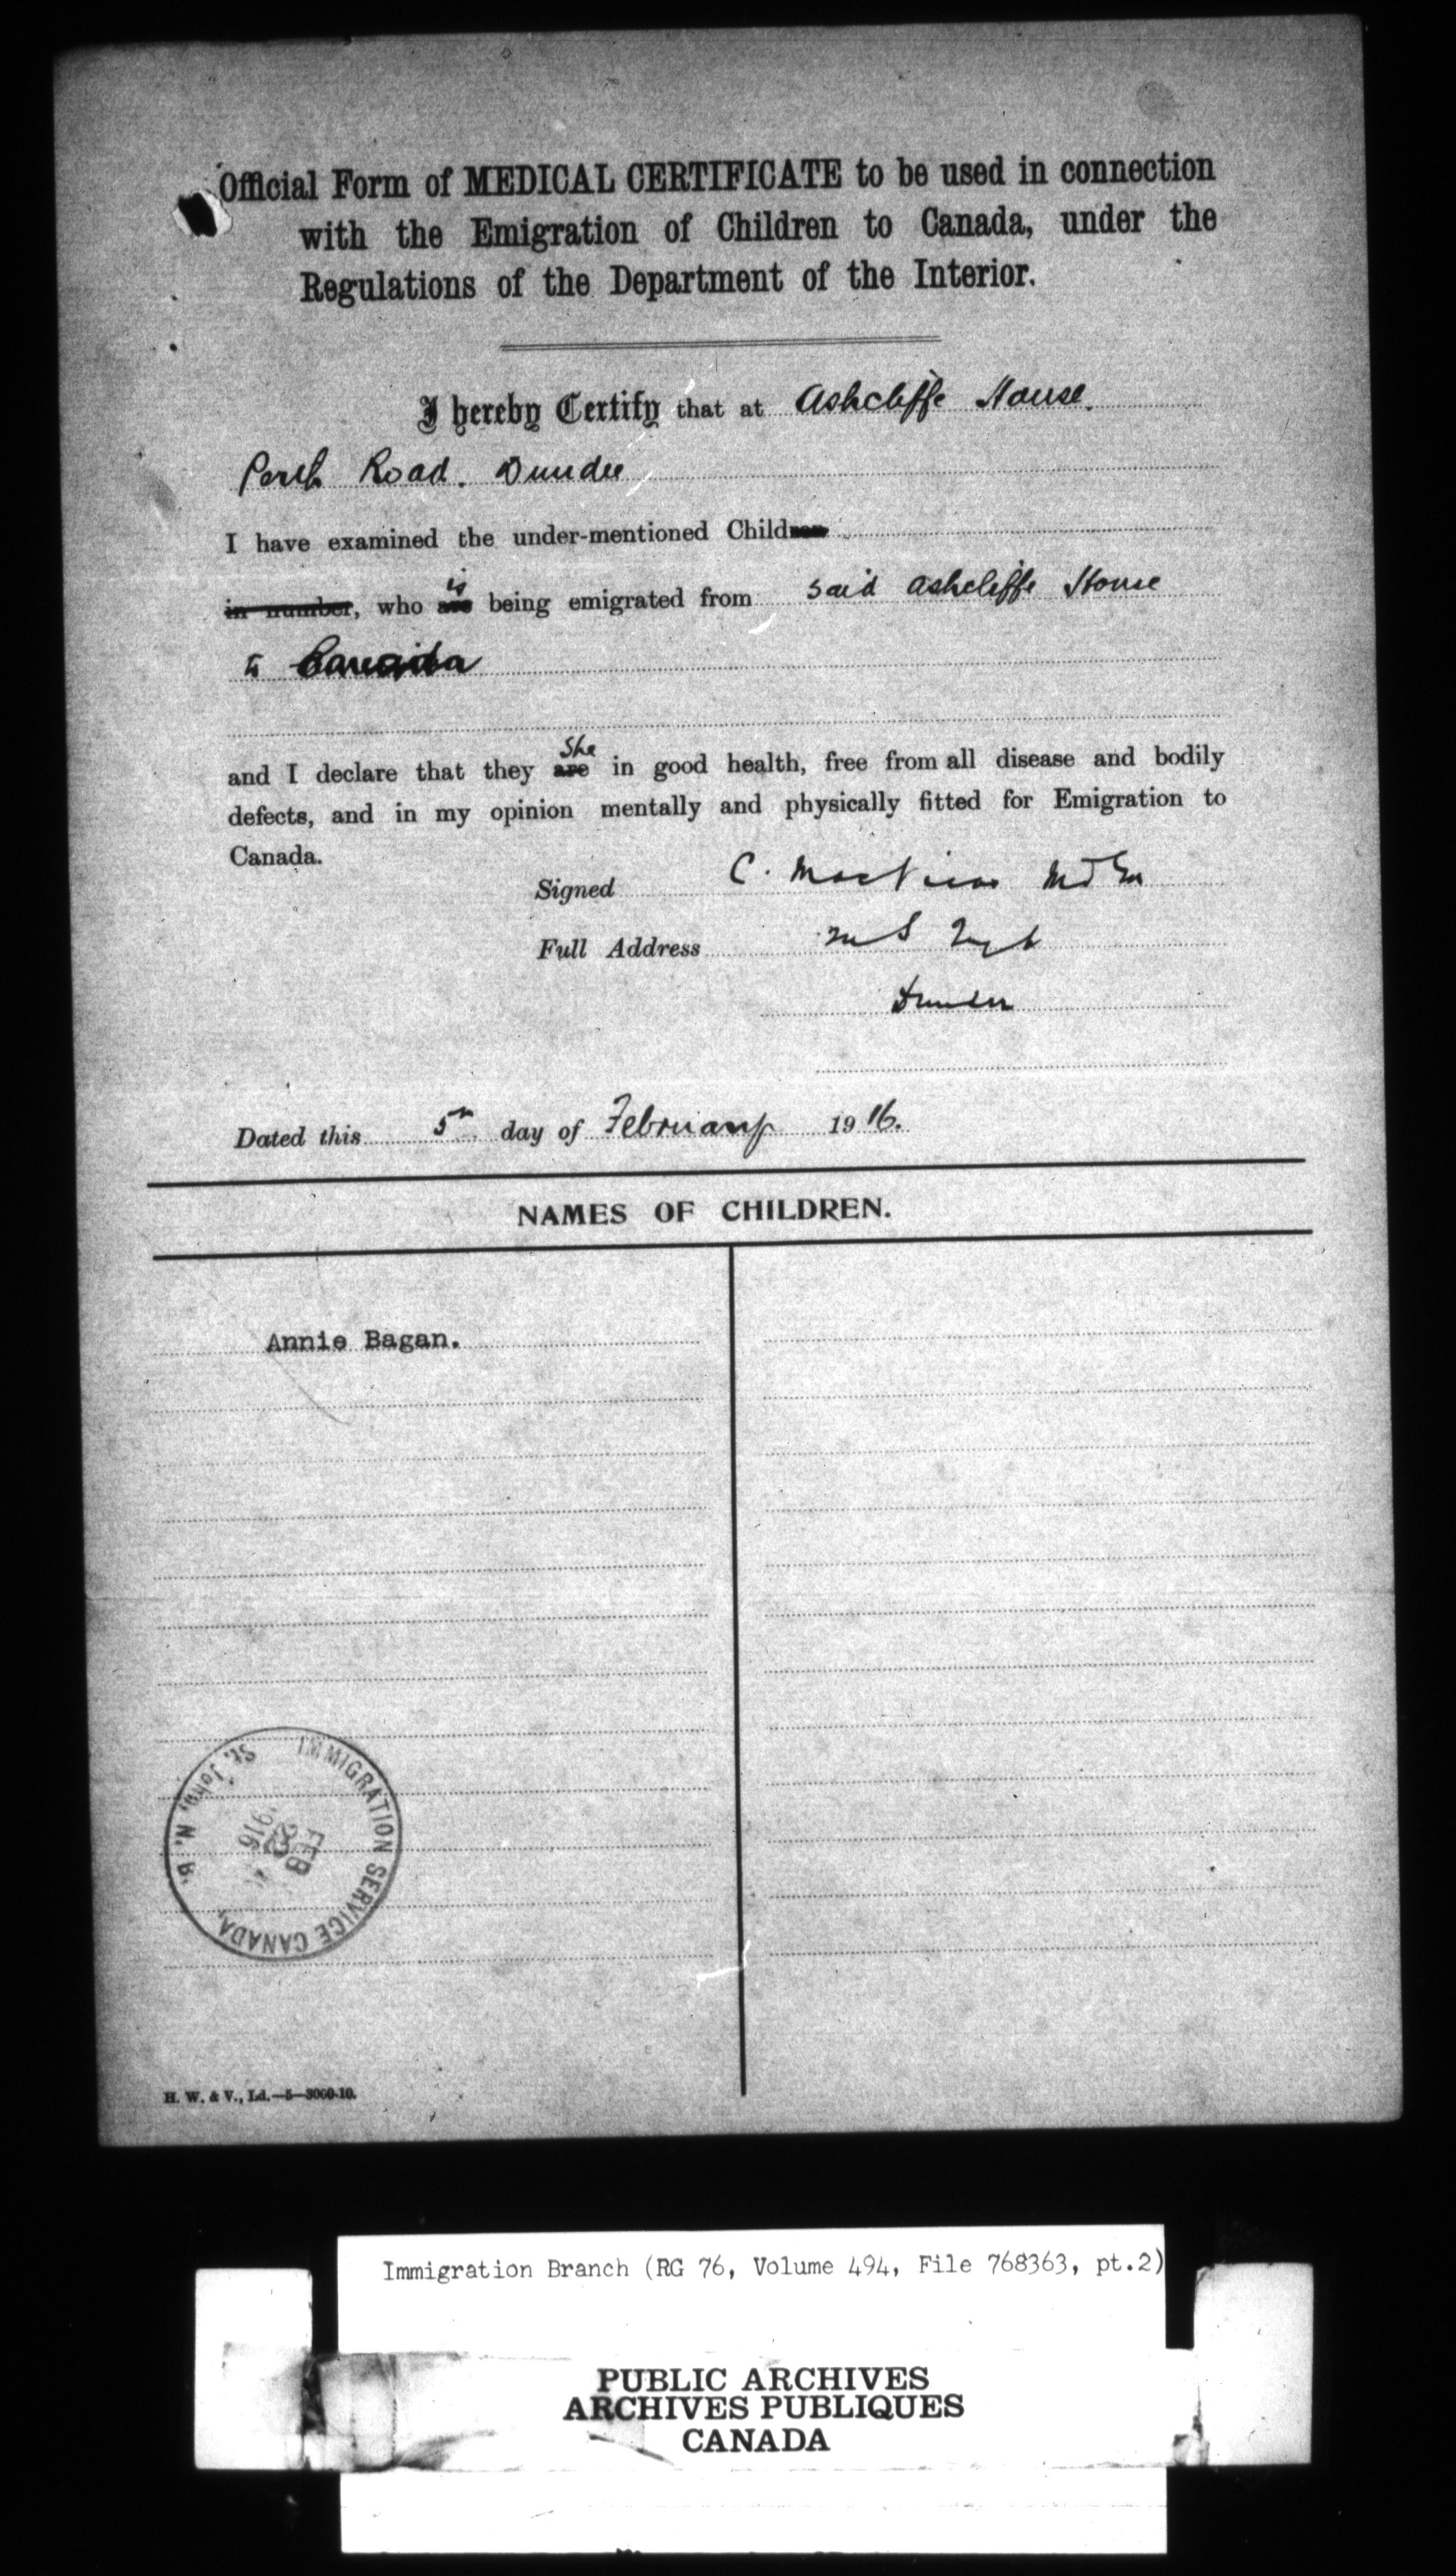 Official Form of MEDICAL CERTIFICATE to be used in connection
with the Emigration of Children to Canada, under the
Regulations of the Department of the Interior.
I hereby Certify that at Ashcliffe House.
Perth Road. Dundee
I have examined the under-mentioned Child
in number, who is are being emigrated from said Ashcliffe House
to Canada
She
and I declare that they are in good health, free from all disease and bodily
defects, and in my opinion mentally and physically fitted for Emigration to
Canada.
Signed C.
Full Address
Dundee
Dated this 5th day of February 1916.
NAMES OF CHILDREN.
Annie Bagan.
IMMIGRATION SERVICE CANADA,
St. John, N. B.
FEB
22
1916
H. W. & V., Ld.—5—3000-10.
Immigration Branch (RG 76, Volume 494, File 768363, pt.2)
PUBLIC ARCHIVES
ARCHIVES PUBLIQUES
CANADA